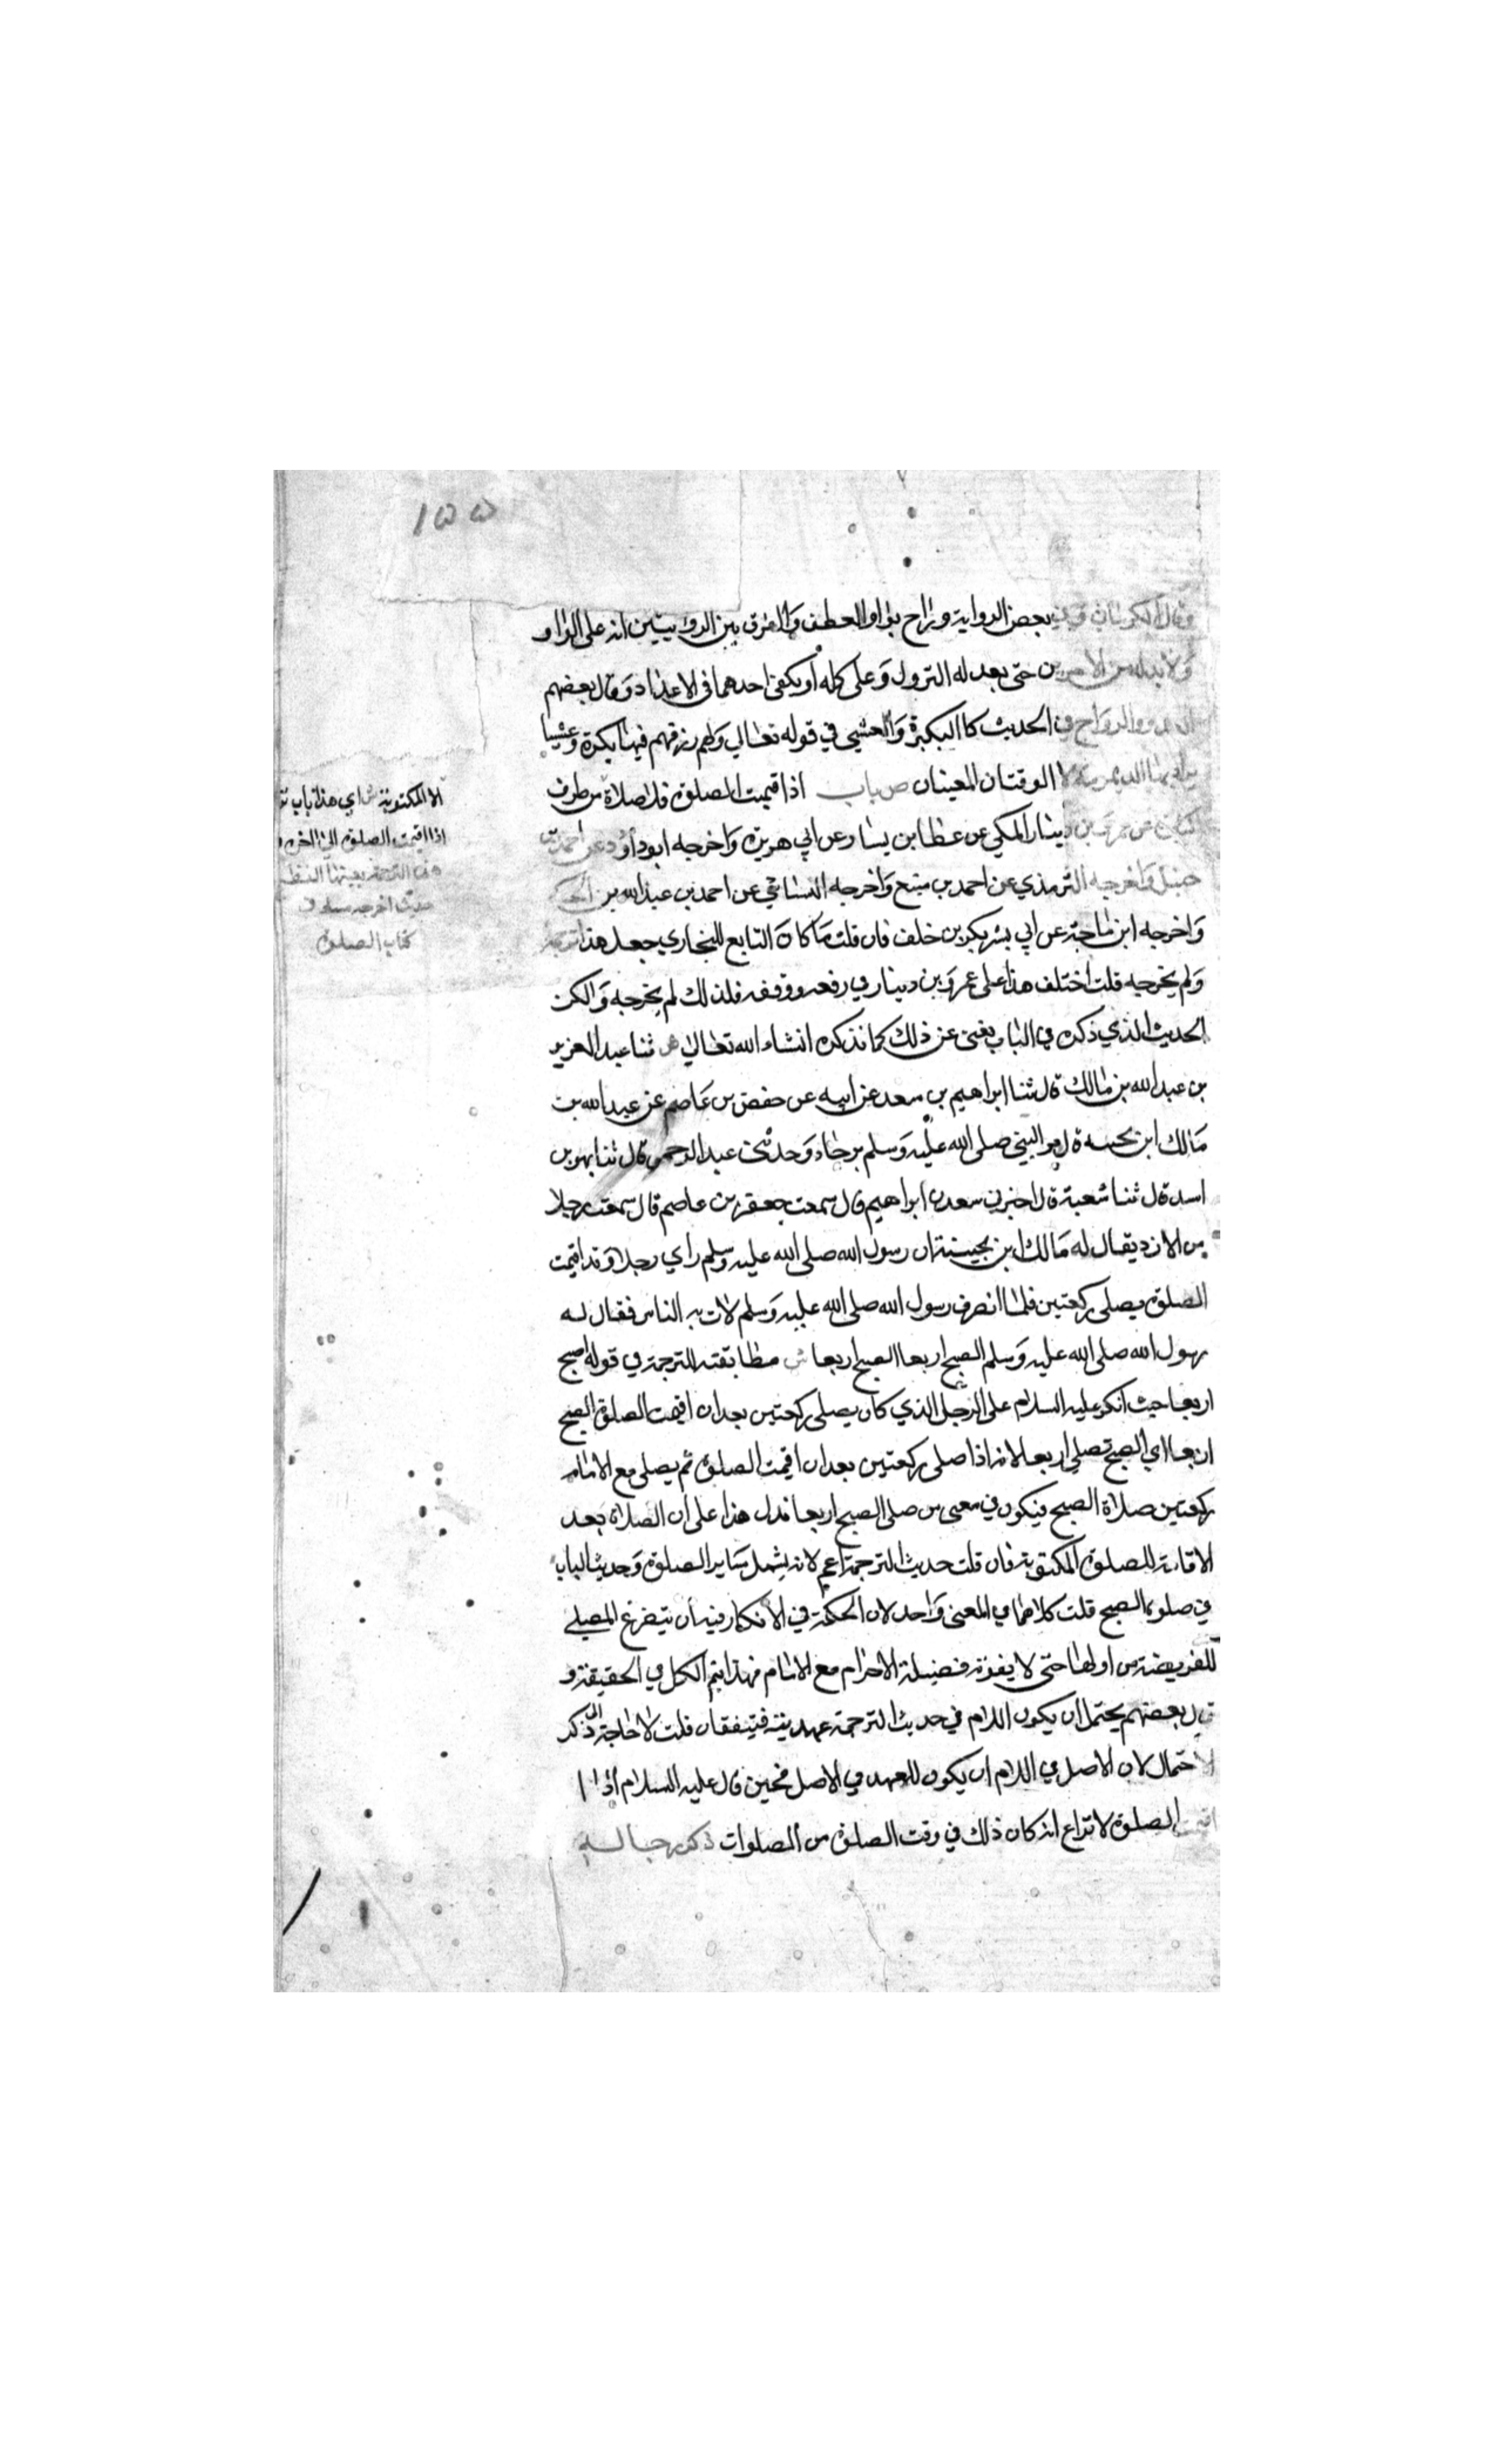 ١٥٥
وقال الكرماني في بعض الرواية وراح بواو العطف والفرق بين الروايتين انه على الواو
ولا بد له من الامرين حتى يعد له النزول وعلى كلمه أو يكفي احدهما في الاعداد وقال بعضهم
الغدو والرواح في الحديث كالبكرة والعشي في قوله تعالي ولهم رزقهم فيها بكرة وعشيا
الوقتان المعينان ص باب اذا قيمت الصلوة فلا صلاة من طرف
دينار المكي عن عطا بن يسار عن ابي هريرة واخرجه ابوداؤد عن احمد بن
حنبل واخرجه الترمذي عن احمد بن منيع واخرجه النسائي عن احمد بن عبد الله بن الحكم
واخرجه ابن ماجة عن ابي بشر بكر بن خلف فان قلت ما كان التابع للبخاري جعل هذا ترجمة
ولم يخرجه قلت اختلف هذا على عمرو بن دينار في رفعه ووقفه فلذلك لم يخرجه ولكن
الحديث الذي ذكره في الباب يغني عن ذلك كما نذكره انشاء الله تعالي ص ثنا عبد العزيز
بن عبد الله بن مالك قال ثنا ابراهيم بن سعد عن ابيه عن حفص بن عاصم عن عبد الله بن
مالك ابن بحينه قال مر النبي صلى الله عليه وسلم برجل وحدثني عبد الرحمن قال ثنا بهز بن
اسد قال ثنا شعبة قال اخبرني سعد بن ابراهيم قال سمعت جعفر بن عاصم قال سمعت رجلا
من الازد يقال له مالك ابن بحينة ان رسول الله صلى الله عليه وسلم راي رجلا وقد اقيمت
الصلوة يصلي ركعتين فلما انصرف رسول الله صلى الله عليه وسلم لاث به الناس فقال له
رسول الله صلى الله عليه وسلم الصبح اربعا الصبح اربعا ش مطابقته للترجمة في قوله اصبح
اربعا حيث انكر عليه السلام على الرجل الذي كان يصلي ركعتين بعد ان اقيمت الصلوة الصبح
اربعا اي الصبح تصلي اربعا لانه اذا صلى ركعتين بعد ان اقيمت الصلوة ثم يصلى مع الامام
ركعتين صلاة الصبح فيكون في معنى من صلى الصبح اربعا فدل هذا على ان الصلاة بعد
الاقامة للصلوة المكتوبة فان قلت حديث الترجمة اعم لانه يشمل ساير الصلوة وحديث الباب
في صلوة الصبح قلت كلاهما في المعنى واحد لان الحكمة في الانكار فيه أن يتفرغ المصلي
للفريضة من اولها حتى لا يفوته فضيلة الاحرام مع الامام فهذا يتم الكل في الحقيقة و
قال بعضهم يحتمل ان يكون اللام في حديث الترجمة عهدية فيتفقان قلت لا حاجة الى ذكر
الاحتمال لان الاصل في اللام ان يكون للعهد في الاصل فحين قال عليه السلام اذا
اقيمت الصلوة لا نزاع انه كان ذلك في وقت الصلوة من الصلوات ذكر رجاله
الا المكتوبة ش اي هذا باب
اذا اقيمت الصلوة الي اخره
هذه الترجمة بعينها لفظ
حديث اخرجه مسلم في
كتاب الصلوة